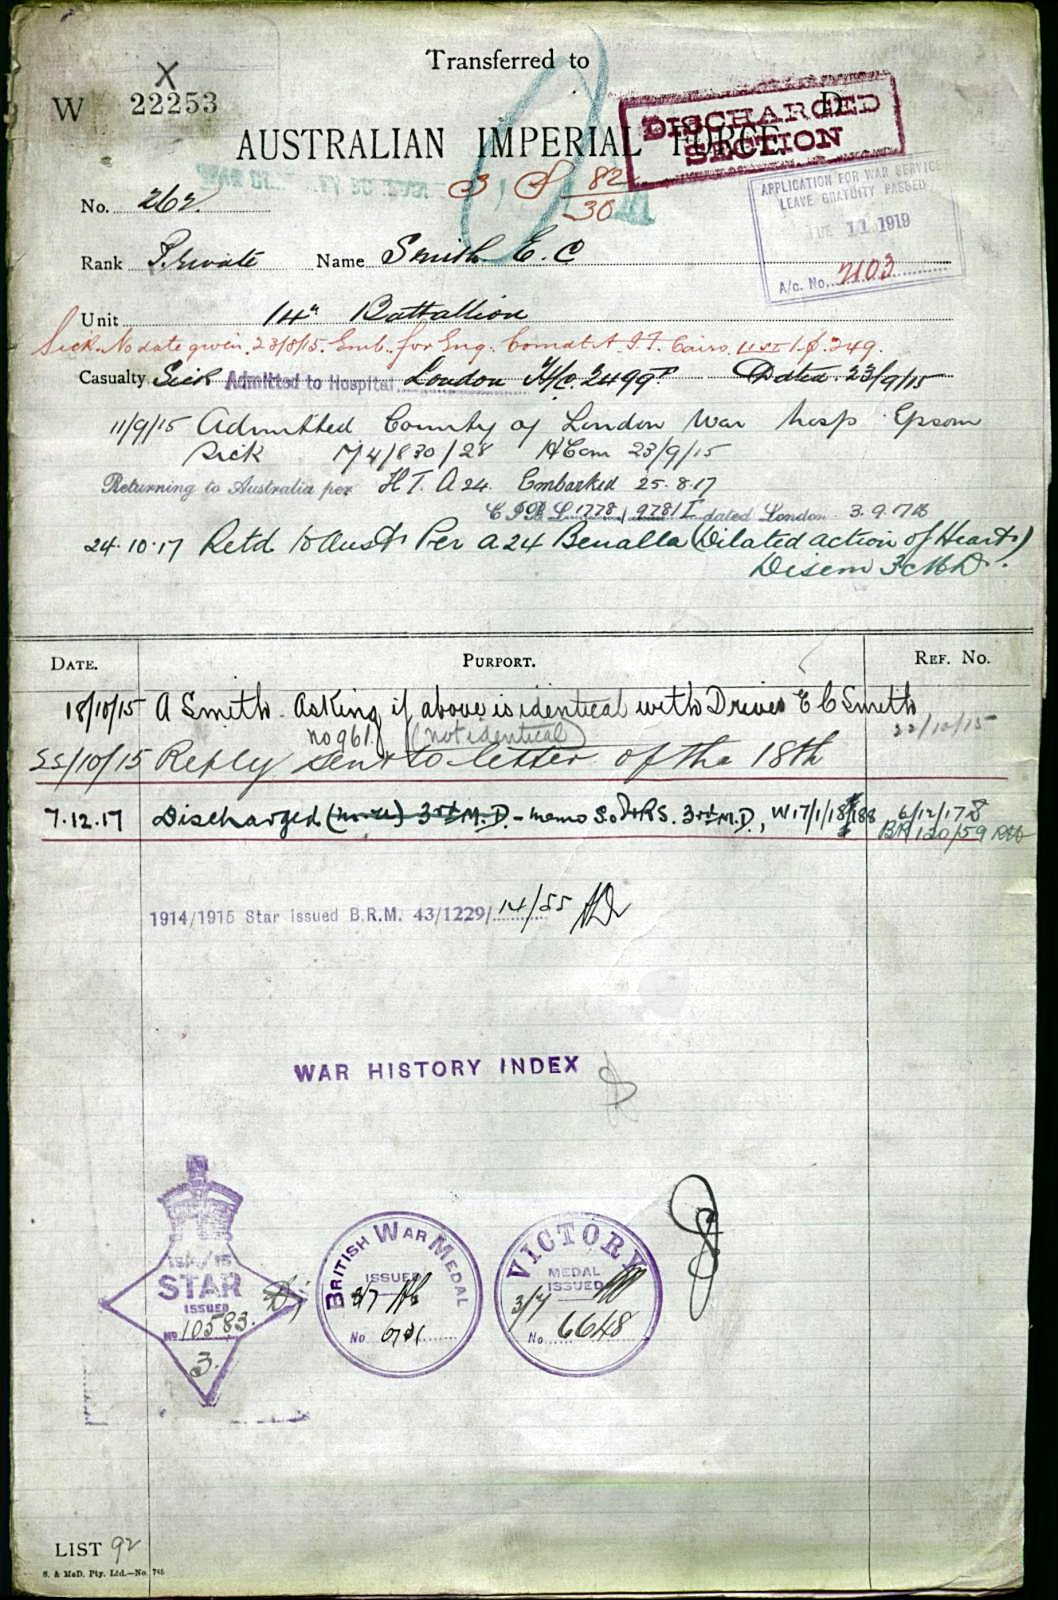 Transferred to
X
W 22253 D
AUSTRALIAN IMPERIAL FORCE
DISCHARGED
SECTION
3 S 82
30
APPLICATION FOR WAR SERVICE
LEAVE GRATUITY PASSED
11 1919
A/c. No. 7103
No. 262
Rank Private Name Smith E. C
Unit 14th Battallion
Sick. No date given. 23/8/15. Emb. for Eng. Comdt A.I.F. Cairo. 249.
Casualty Sick Admitted to Hospital London H/c. 2499 Dated 23/9/15
11/9/15 Admitted County of London War hosp Epsom
Sick 7/4/830/28 HCom 23/9/15
Returning to Australia per HT. A 24. Embarked 25.8.17
L 1778/ 9781 dated London 3.9.17
24.10.17 Retd to Aust Per A24 Benalla (Dilated action of Heart)
Disem 3 MD.
DATE. PURPORT. REF. No.
18/10/15 A Smith. Asking if above is identical with Driver E C Smith
no 961 (not identical) 22/10/15
22/10/15 Reply sent to letter of the 18th
7.12.17 Discharged 3rd M.D. - memo 3rd M.D., W17/1/18 6/12/17
BR 120/59
1914/1915 Star Issued B.R.M. 43/1229/ 14/55
WAR HISTORY INDEX
1914/15
STAR
ISSUED
No 10583.
3.
BRITISH WAR MEDAL
ISSUED
3/7
No
VICTORY
MEDAL
ISSUED
3/7
No 6648
LIST 92
S. & McD. Pty. Ltd.—No. 745